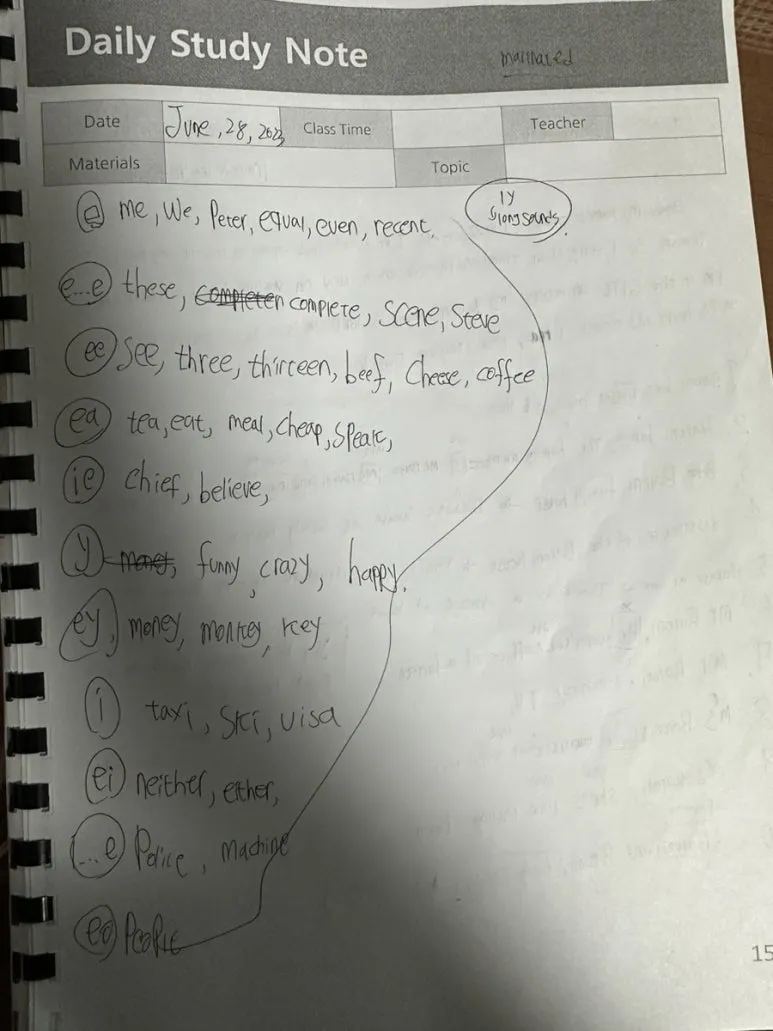 Daily Study Note
Date June, 28, 2023 Class Time Teacher
Materials Topic
e me, We, Peter, equal, even, recent,
iy
long sounds
e...e these, complete, Scene, Steve
ee See, three, thirteen, beef, Cheese, coffee
ea tea, eat, meal, cheap, speak,
ie chief, believe,
y money, funny, crazy, happy.
ey, money, monkey, key
i taxi, Ski, visa
ei neither, either,
i...e Police, Machine
eo People
15